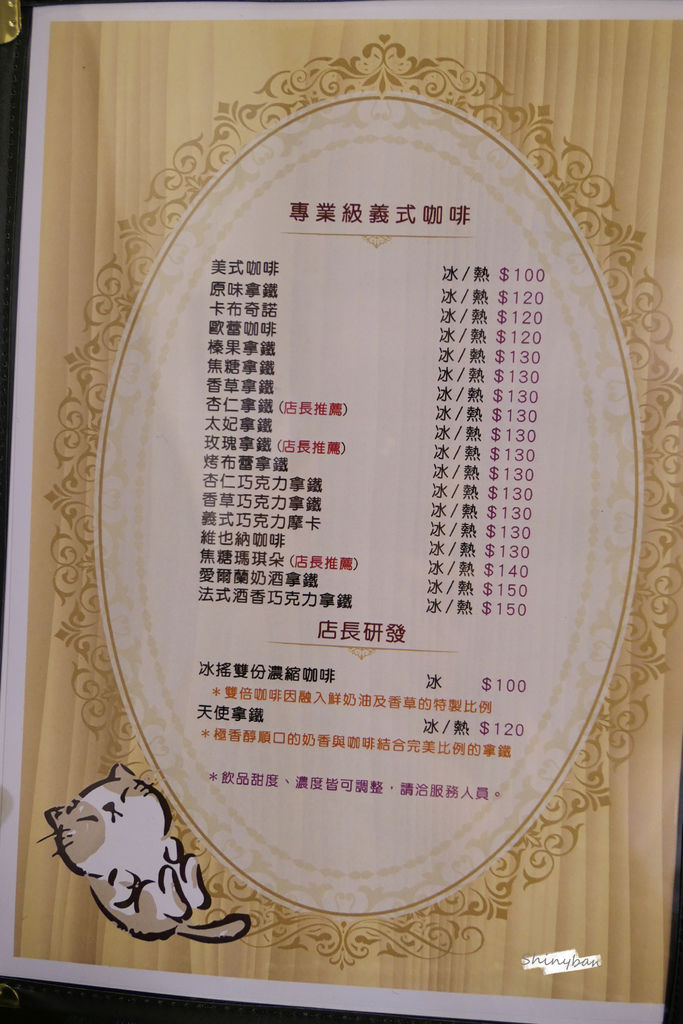 專業級義式咖啡
美式咖啡 冰/熱 $100
原味拿鐵 冰/熱 $120
卡布奇諾 冰/熱 $120
歐蕾咖啡 冰/熱 $120
榛果拿鐵 冰/熱 $130
焦糖拿鐵 冰/熱 $130
香草拿鐵 冰/熱 $130
杏仁拿鐵 (店長推薦) 冰/熱 $130
太妃拿鐵 冰/熱 $130
玫瑰拿鐵 (店長推薦) 冰/熱 $130
烤布蕾拿鐵 冰/熱 $130
杏仁巧克力拿鐵 冰/熱 $130
香草巧克力拿鐵 冰/熱 $130
義式巧克力摩卡 冰/熱 $130
維也納咖啡 冰/熱 $130
焦糖瑪琪朵 (店長推薦) 冰/熱 $140
愛爾蘭奶酒拿鐵 冰/熱 $150
法式酒香巧克力拿鐵 冰/熱 $150
店長研發
冰搖雙份濃縮咖啡 冰 $100
＊雙倍咖啡因融入鮮奶油及香草的特製比例
天使拿鐵 冰/熱 $120
＊極香醇順口的奶香與咖啡結合完美比例的拿鐵
＊飲品甜度、濃度皆可調整，請洽服務人員。
shinyban